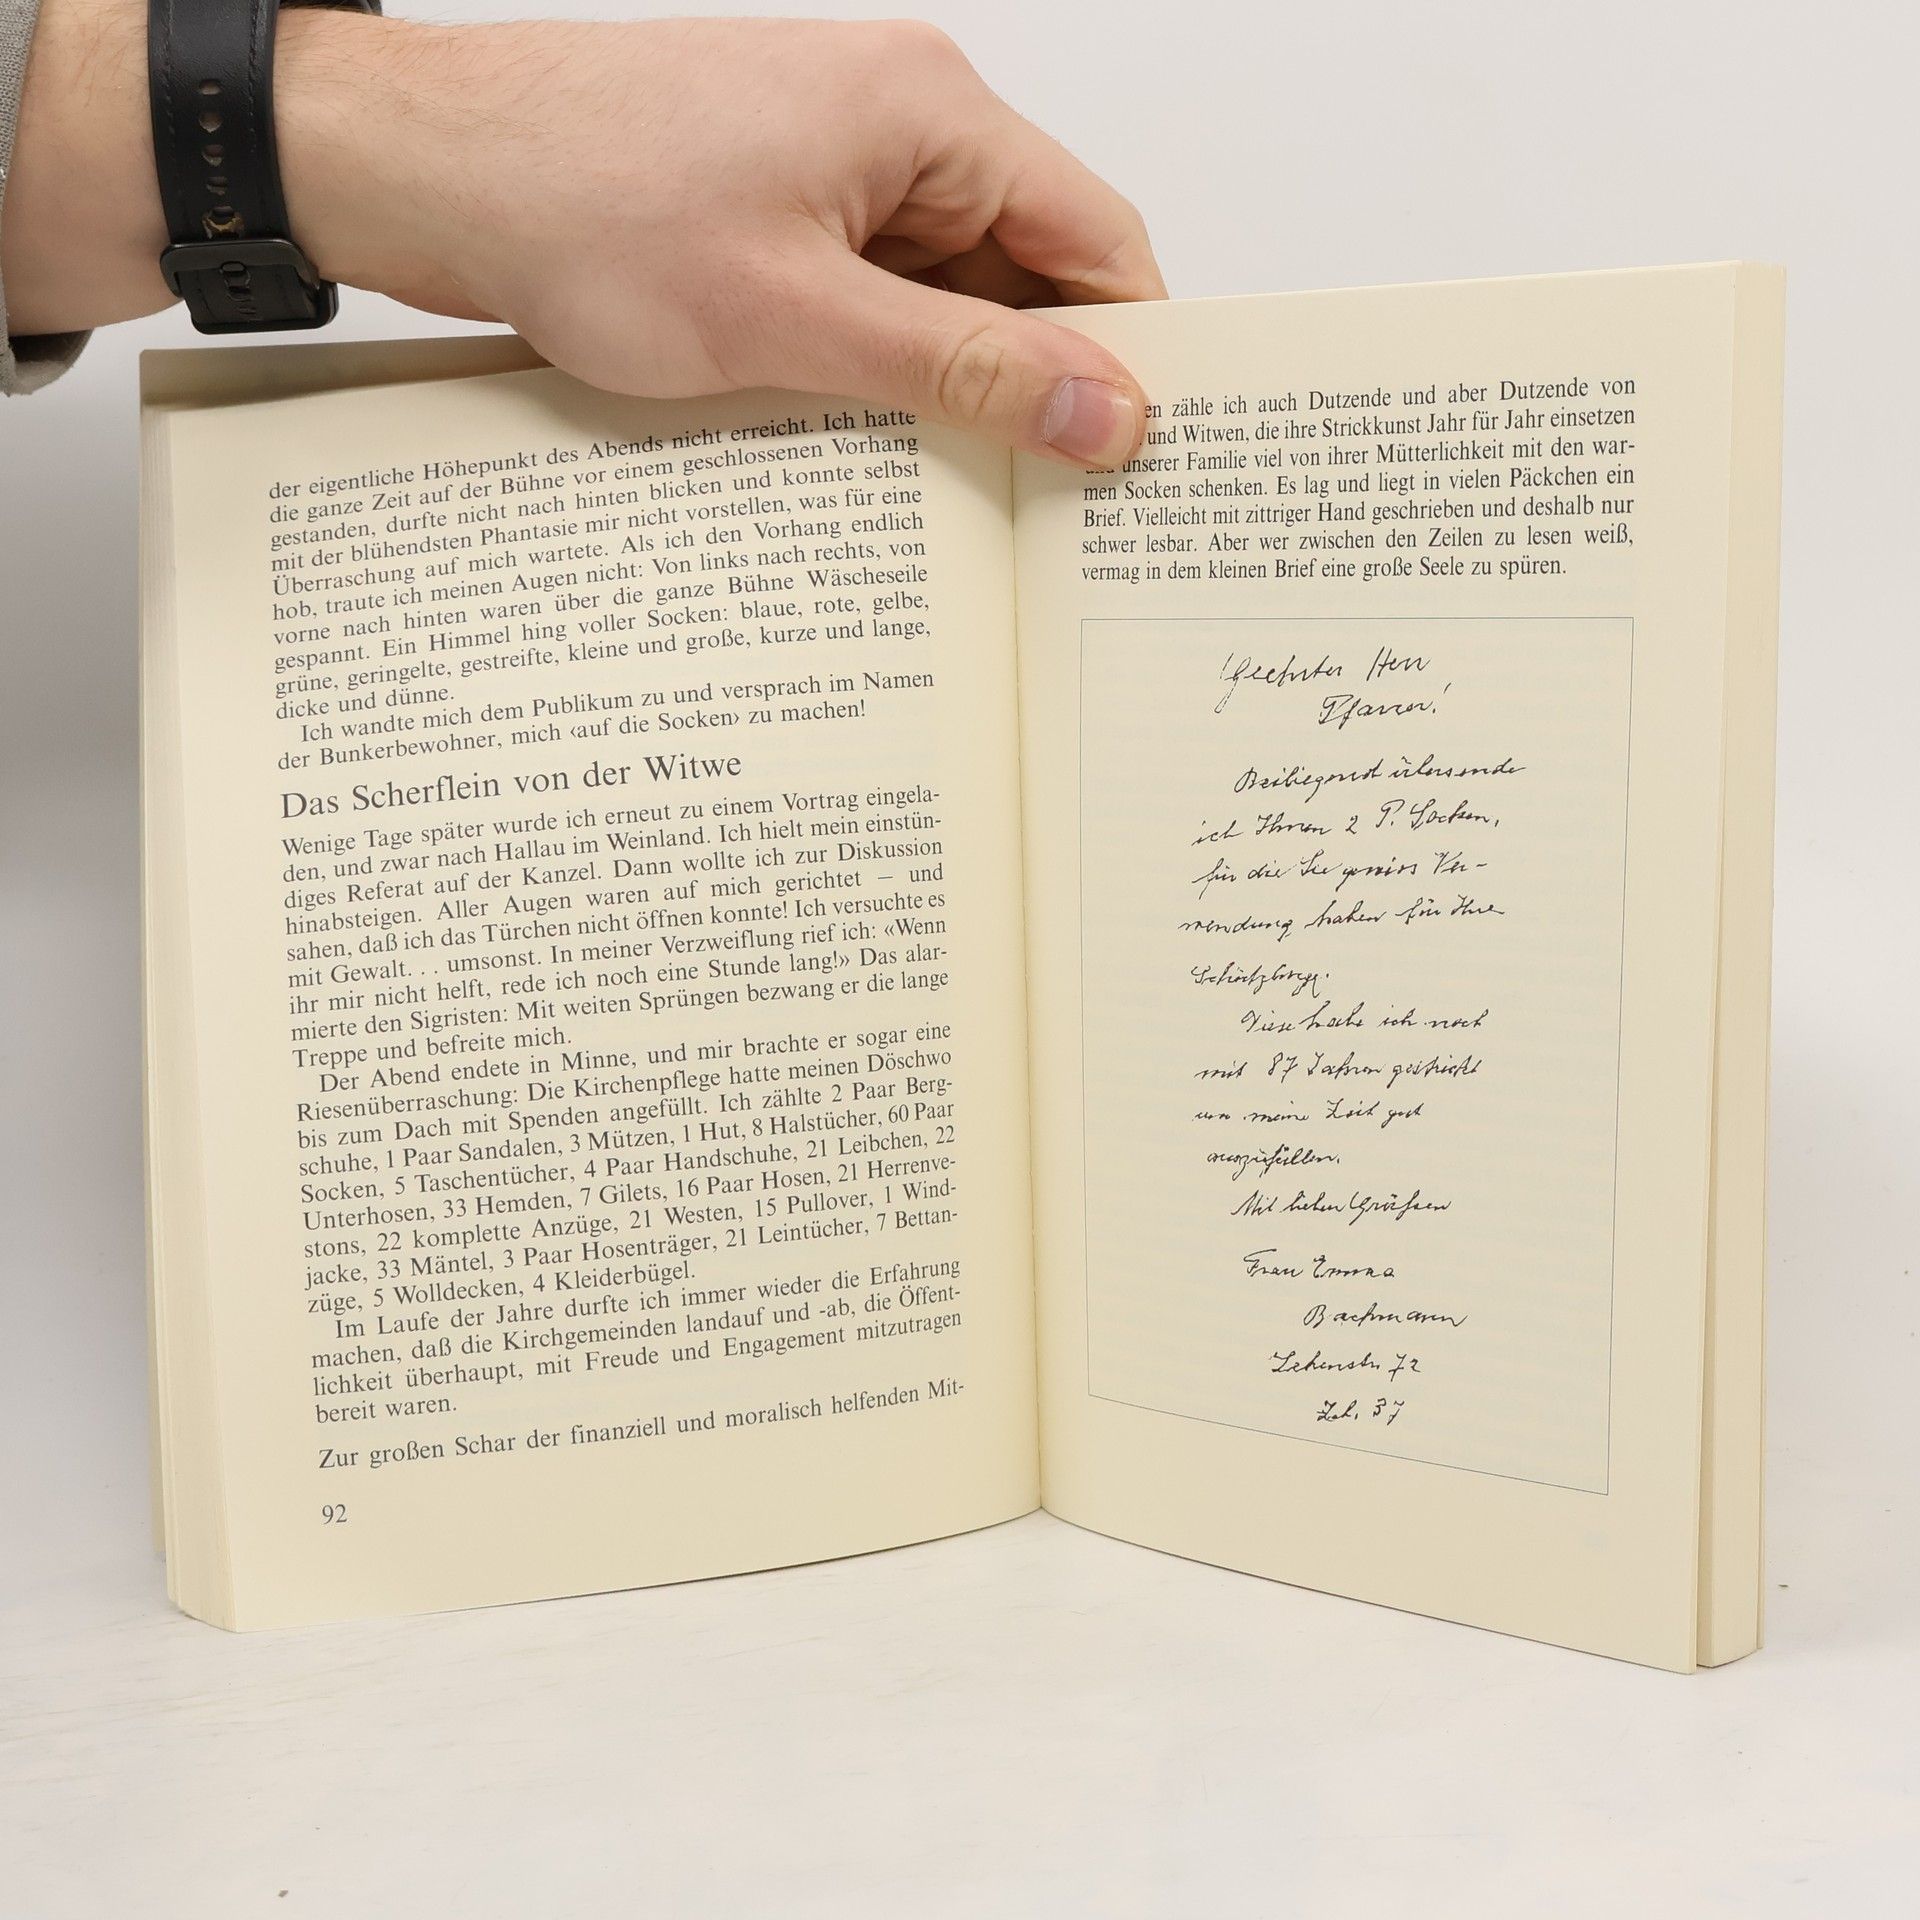 der eigentliche Höhepunkt des Abends nicht erreicht. Ich hatte
die ganze Zeit auf der Bühne vor einem geschlossenen Vorhang
gestanden, durfte nicht nach hinten blicken und konnte selbst
mit der blühendsten Phantasie mir nicht vorstellen, was für eine
Überraschung auf mich wartete. Als ich den Vorhang endlich
hob, traute ich meinen Augen nicht: Von links nach rechts, von
vorne nach hinten waren über die ganze Bühne Wäscheseile
gespannt. Ein Himmel hing voller Socken: blaue, rote, gelbe,
grüne, geringelte, gestreifte, kleine und große, kurze und lange,
dicke und dünne.
Ich wandte mich dem Publikum zu und versprach im Namen
der Bunkerbewohner, mich ‹auf die Socken› zu machen!
Das Scherflein von der Witwe
Wenige Tage später wurde ich erneut zu einem Vortrag eingela-
den, und zwar nach Hallau im Weinland. Ich hielt mein einstün-
diges Referat auf der Kanzel. Dann wollte ich zur Diskussion
hinabsteigen. Aller Augen waren auf mich gerichtet – und
sahen, daß ich das Türchen nicht öffnen konnte! Ich versuchte es
mit Gewalt. . . umsonst. In meiner Verzweiflung rief ich: «Wenn
ihr mir nicht helft, rede ich noch eine Stunde lang!» Das alar-
mierte den Sigristen: Mit weiten Sprüngen bezwang er die lange
Treppe und befreite mich.
Der Abend endete in Minne, und mir brachte er sogar eine
Riesenüberraschung: Die Kirchenpflege hatte meinen Döschwo
bis zum Dach mit Spenden angefüllt. Ich zählte 2 Paar Berg-
schuhe, 1 Paar Sandalen, 3 Mützen, 1 Hut, 8 Halstücher, 60 Paar
Socken, 5 Taschentücher, 4 Paar Handschuhe, 21 Leibchen, 22
Unterhosen, 33 Hemden, 7 Gilets, 16 Paar Hosen, 21 Herrenve-
stons, 22 komplette Anzüge, 21 Westen, 15 Pullover, 1 Wind-
jacke, 33 Mäntel, 3 Paar Hosenträger, 21 Leintücher, 7 Bettan-
züge, 5 Wolldecken, 4 Kleiderbügel.
Im Laufe der Jahre durfte ich immer wieder die Erfahrung
machen, daß die Kirchgemeinden landauf und -ab, die Öffent-
lichkeit überhaupt, mit Freude und Engagement mitzutragen
bereit waren.
Zur großen Schar der finanziell und moralisch helfenden Mit-
92
zähle ich auch Dutzende und aber Dutzende von
und Witwen, die ihre Strickkunst Jahr für Jahr einsetzen
unserer Familie viel von ihrer Mütterlichkeit mit den war-
men Socken schenken. Es lag und liegt in vielen Päckchen ein
Brief. Vielleicht mit zittriger Hand geschrieben und deshalb nur
schwer lesbar. Aber wer zwischen den Zeilen zu lesen weiß,
vermag in dem kleinen Brief eine große Seele zu spüren.
Geehrter Herr
Pfarrer!
Beiliegend übersende
ich Ihnen 2 P. Socken,
für die Sie gewiss Ver-
wendung haben für Ihre
Schützlinge.
Diese habe ich noch
mit 87 Jahren gestrickt
um meine Zeit gut
auszufüllen.
Mit lieben Grüssen
Frau Emma
Bachmann
Lehenstr. 72
Zch. 37